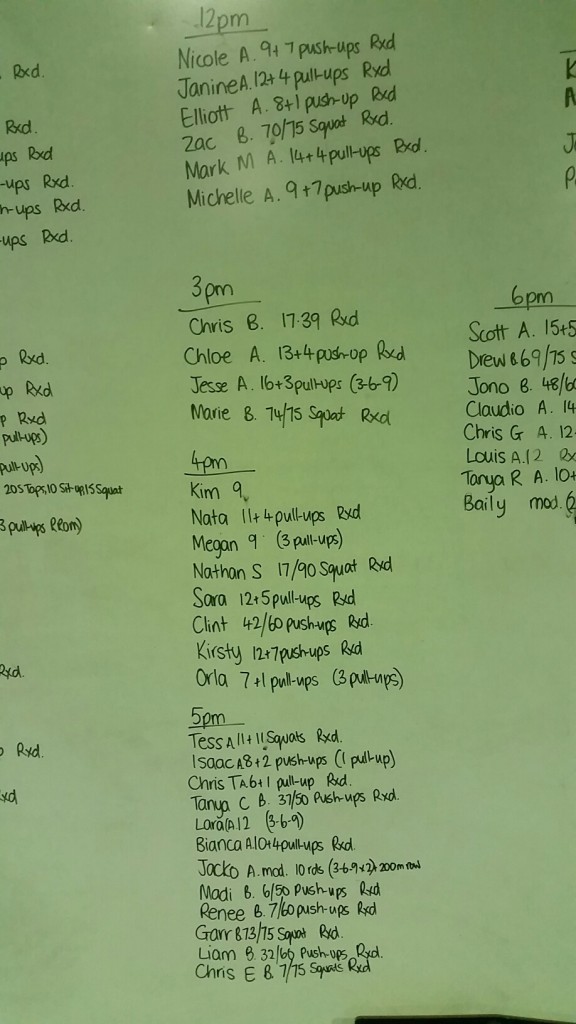 Rxd.
Rxd.
ups Rxd
-ups Rxd.
h-ups Rxd.
-ups Rxd.
p Rxd.
up Rxd
p Rxd
pull-ups)
pull-ups)
20S Taps, 10 Sit-up, 15 Squat
3 pull-ups PROM)
Rxd.
Rxd.
xd
12pm
Nicole A. 9+7 push-ups Rxd
Janine A. 12+4 pull-ups Rxd
Elliott A. 8+1 push-up Rxd
Zac B. 70/75 Squat Rxd.
Mark M A. 14+4 pull-ups Rxd.
Michelle A. 9+7 push-up Rxd.
3pm
Chris B. 17:39 Rxd
Chloe A. 13+4 push-up Rxd
Jesse A. 16+3 pull-ups (3-6-9)
Marie B. 74/75 Squat Rxd
4pm
Kim 9
Nata 11+4 pull-ups Rxd
Megan 9 (3 pull-ups)
Nathan S 17/90 Squat Rxd
Sara 12+5 pull-ups Rxd
Clint 42/60 push-ups Rxd.
Kirsty 12+7 push-ups Rxd
Orla 7+1 pull-ups (3 pull-ups)
5pm
Tess A 11+11 Squats Rxd.
Isaac A 8+2 push-ups (1 pull-up)
Chris T A 6+1 pull-up Rxd.
Tanya C B. 37/50 Push-ups Rxd.
Lara A. 12 (3-6-9)
Bianca A. 10+4 pull-ups Rxd.
Jacko A. mod. 10 rds (3-6-9x2)+200m row
Madi B. 6/50 Push-ups Rxd
Renee B. 7/60 push-ups Rxd
Garr B 73/75 Squat Rxd.
Liam B. 32/60 Push-ups Rxd.
Chris E B. 7/75 Squats Rxd
6pm
Scott A. 15+5
Drew B 69/75 S
Jono B. 48/60
Claudio A. 14
Chris G A. 12
Louis A. 12 Rx
Tanya R A. 10+
Baily mod. (2